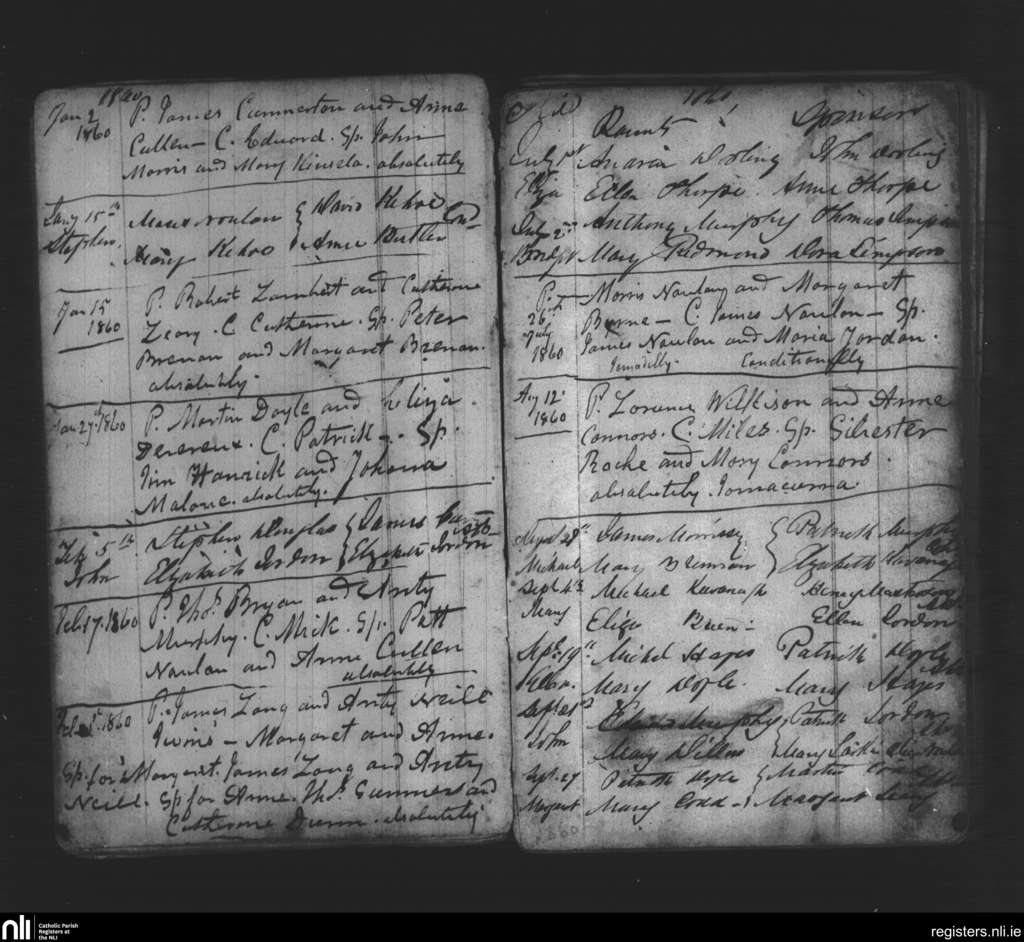 1860
Jan 2 P. James Cummerton and Anne
1860 Cullen - C. Edward. Sp. John
Morris and Mary Kinsela. absolutely
Jany 15th Nowlan { David Kehoe
Stephen. Mary Kehoe Anne Butler Con-
Jan 15 P. Robert Lambert and Catherine
1860 Leary. C Catherine. Sp. Peter
Brenan and Margaret Brenan.
absolutely.
Jan 27th 1860 P. Martin Doyle and
Devereux. C. Patrick -. Sp.
Jim Hanrick and Johanna
Malone. absolutely.
Feby 5th Stephen Douglas { James
John Elizabeth Jordon { Elizabeth Jordon
Feb. 17. 1860 P. Thos. Bryan and Anty
Murphy. C. Mick. Sp. Patt
Nowlan and Anne Cullen
absolutely
1860 P. James Long and Anty Neill
Twins - Margaret and Anne.
Sp. for Margaret. James Long and Anty
Neill. Sp for Anne. Thos. Summers and
Catherine Dunn. absolutely
Parents Sponsors
July 1st Dorling John Dorling
Eliza Ellen Thorpe. Anne Thorpe
July 2nd Anthony Murphy Thomas
Bridget Mary Redmond Dora Simpson
26th Morris Nowlan and Margaret
July Byrne - C. James Nowlan - Sp.
1860 James Nowlan and Maria Jordan.
Conditionally
Aug 12 P. Lorance Wilkison and Anne
1860 Connors. C. Miles. Sp. Silvester
Roche and Mary Connors.
absolutely.
August 28th James Morrissy { Patrick Murphy
Michael Mary Brennan { Elizabeth Kavanagh
Sept 4th Michael Kavanagh Henry
Mary Eliza Brien - Ellen Jordon
Sept. 19th Michel Hayes Patrick Doyle
Mary Doyle. Mary Hayes
Sept 21st Murphy Patrick Jordon
John Mary Dillon { Mary
Sept. 27 Patrick Doyle { Martin
Margaret Mary Codd - { Margaret
1860
nli
Catholic Parish
Registers at
the NLI
registers.nli.ie